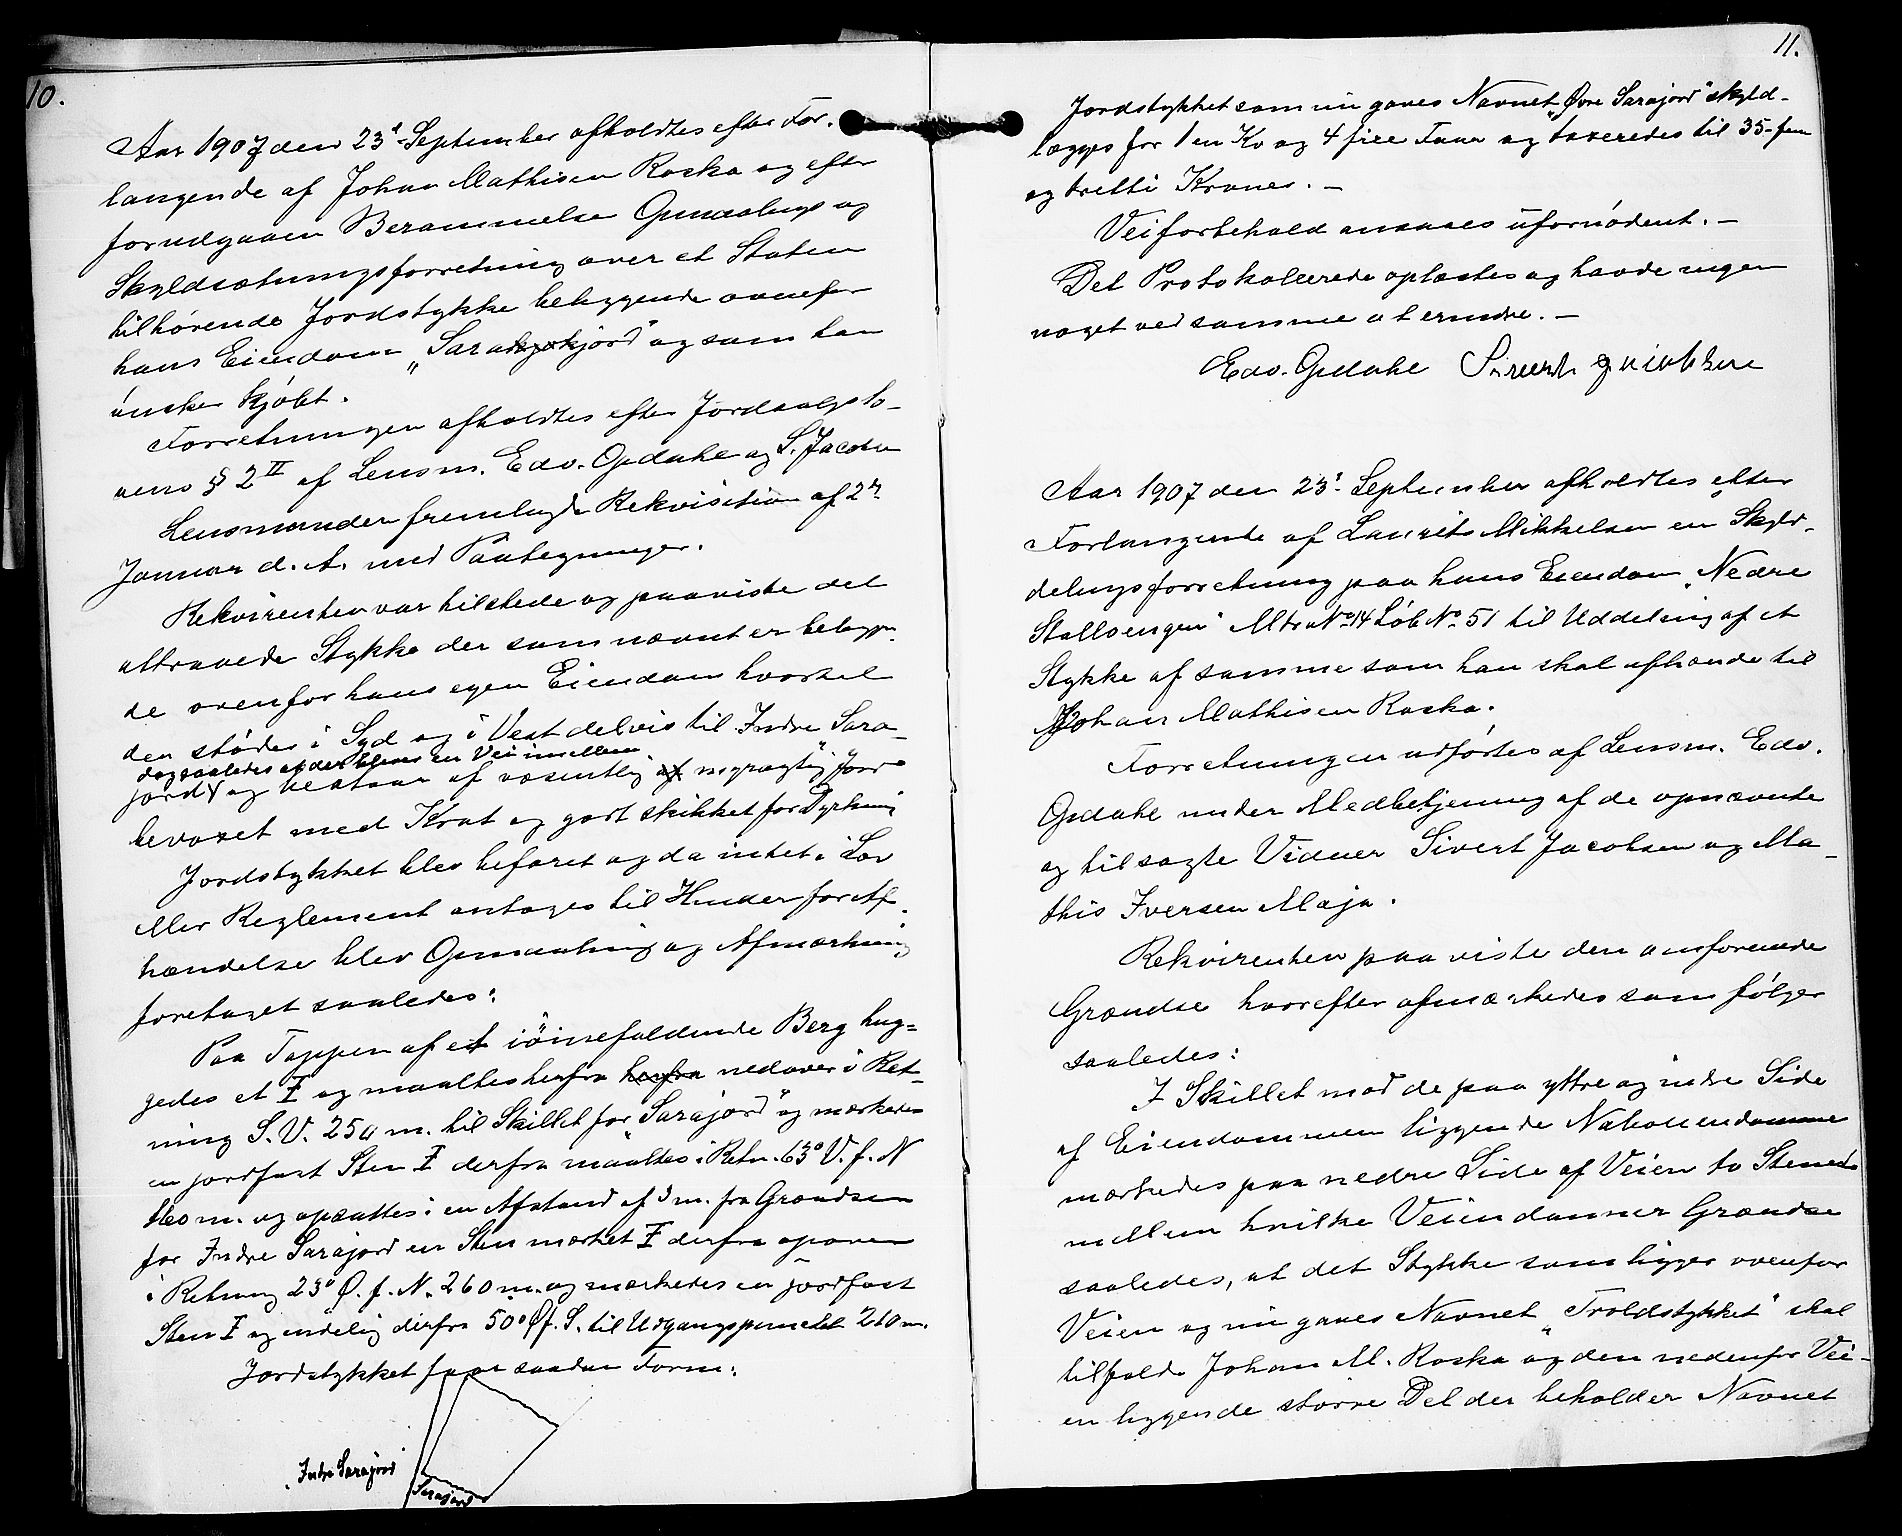 10.
Aar 1907 den 23' September afholdtes efter For-
langende af Johan Mathisen Raska og efter
forudgaaen Berammelse Opmaalings og
Skyldsætningsforretning over et Staten
tilhørende Jordstykke beliggende ovenfor
hans Eiendom "Sarajord" og som han
ønsker kjøbt.
Forretningen afholdtes efter Jordsalgslo-
vens § 2 II af Lensm. Edv. Opdahl og S. Jacobsen
Lensmanden fremlagde Rekvisition af 2'
Januar d. A. med Paategninger.
Rekvirenten var tilstede og paaviste det
attraaede Stykke der som nævnt er beliggen-
de ovenfor hans egen Eiendom hvortil
den støder i Syd og i Vest delvis til Indre Sara-
dog saaledes at der blever en Vei imellem
jord og bestaar af væsentlig myragtig Jord
bevoxet med Krat og godt skikket for Dyrkning
Jordstykket blev befaret og da intet i Lov
eller Reglement antoges til Hinder for Af-
hændelse blev Opmaaling og Afmærkning
foretaget saaledes:
Paa Toppen af et iøinefaldende Berg hug-
gedes et I og maaltes herfra herfra nedover i Ret-
ning S.V. 250 m. til Skillet for "Sarajord" og mærkedes
en jordfast Sten I derfra maaltes i Retn. 63° V. f. N
160 m. og opsattes i en Afstand af 5 m. fra Grændsen
for Indre Sarajord en Sten mærket I derfra opover
i Retning 23° Ø. f. N. 260 m. og mærkedes en jordfast
Sten I og endelig derfra 50° Ø f. S. til Udgangspunctet 210 m.
Jordstykket faar saadan Form:
Indre Sarajord
Sarajord
11.
Jordstykket som nu gaves Navnet "Øvre Sarajord" skyld-
lægges for 1 en Ko og 4 fire Faar og taxeredes til 35- fem
og tretti Kroner. -
Veiforbehold ansaaes ufornødent. -
Det Protokollerede oplæstes og havde ingen
noget ved samme at erindre. -
Edv. Opdahl Sivert Jakobsen
Aar 1907 den 23' September afholdtes efter
Forlangende af Laurits Mikkelsen en Skyld-
delingsforretning paa hans Eiendom "Nedre
Stalloengen" Matr No 14 Løb No 51 til Uddeling af et
Stykke af samme som han skal afhænde til
Johan Mathisen Raska.
Forretningen udførtes af Lensm. Edv.
Opdahl under Medbetjening af de opnævnte
og tilsagte Vidner Sivert Jacobsen og Ma-
this Iversen Maja.
Rekvirenten paaviste den omforenede
Grændse hvorefter afmærkedes som følger
saaledes:
I Skillet mod de paa yttre og indre Side
af Eiendommen liggende Naboeiendomme
mærkedes paa nedre Side af Veien to Stene I
mellem hvilke Veien danner Grændse
saaledes, at det Stykke som ligger ovenfor
Veien og nu gaves Navnet "Troldstykket" skal
tilfalde Johan M. Raska og den nedenfor Vei-
en liggende større Del der beholder Navnet